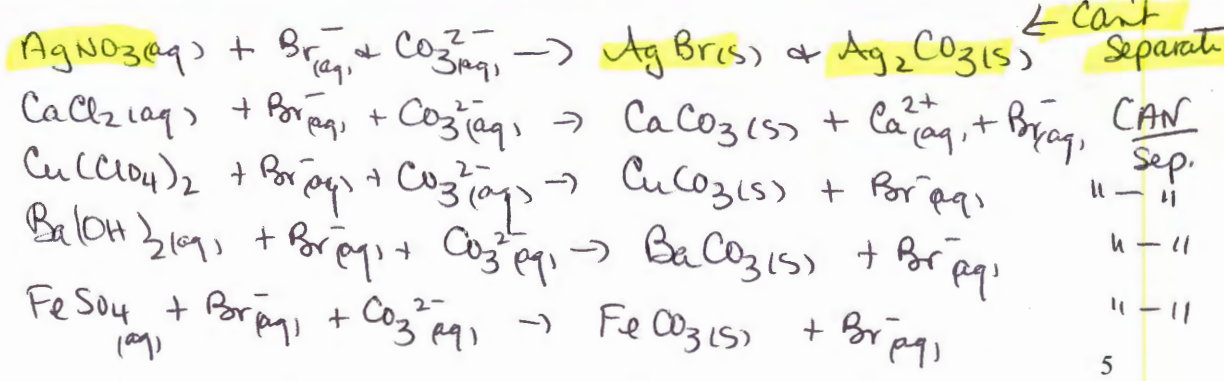 ← Can't
AgNO3(aq) + Br⁻(aq) & CO3²⁻(aq) → AgBr(s) & Ag2CO3(s) Separate
CaCl2(aq) + Br⁻(aq) + CO3²⁻(aq) → CaCO3(s) + Ca²⁺(aq) + Br⁻(aq) CAN
Sep.
Cu(ClO4)2 + Br⁻(aq) + CO3²⁻(aq) → CuCO3(s) + Br⁻(aq) " — "
Ba(OH)2(aq) + Br⁻(aq) + CO3²⁻(aq) → BaCO3(s) + Br⁻(aq) " — "
FeSO4(aq) + Br⁻(aq) + CO3²⁻(aq) → FeCO3(s) + Br⁻(aq) " — "
5